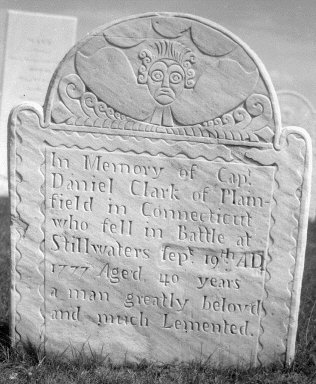 In Memory of Capt.
Daniel Clark of Plain-
field in Connecticut
who fell in Battle at
Stillwaters Sept. 19th AD
1777 Aged 40 years
a man greatly belovd
and much Lemented.